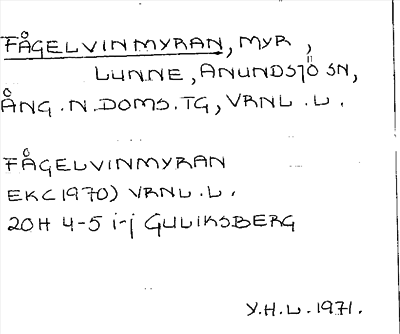 FÅGELVINMYRAN, MYR,
LUNNE, ANUNDSJÖ SN,
ÅNG.N.DOMS.TG, VRNL.L.
FÅGELVINMYRAN
EKC1970) VRNL.L.
20H 4-5 i-j GULIKSBERG
Y.H.L.1971.